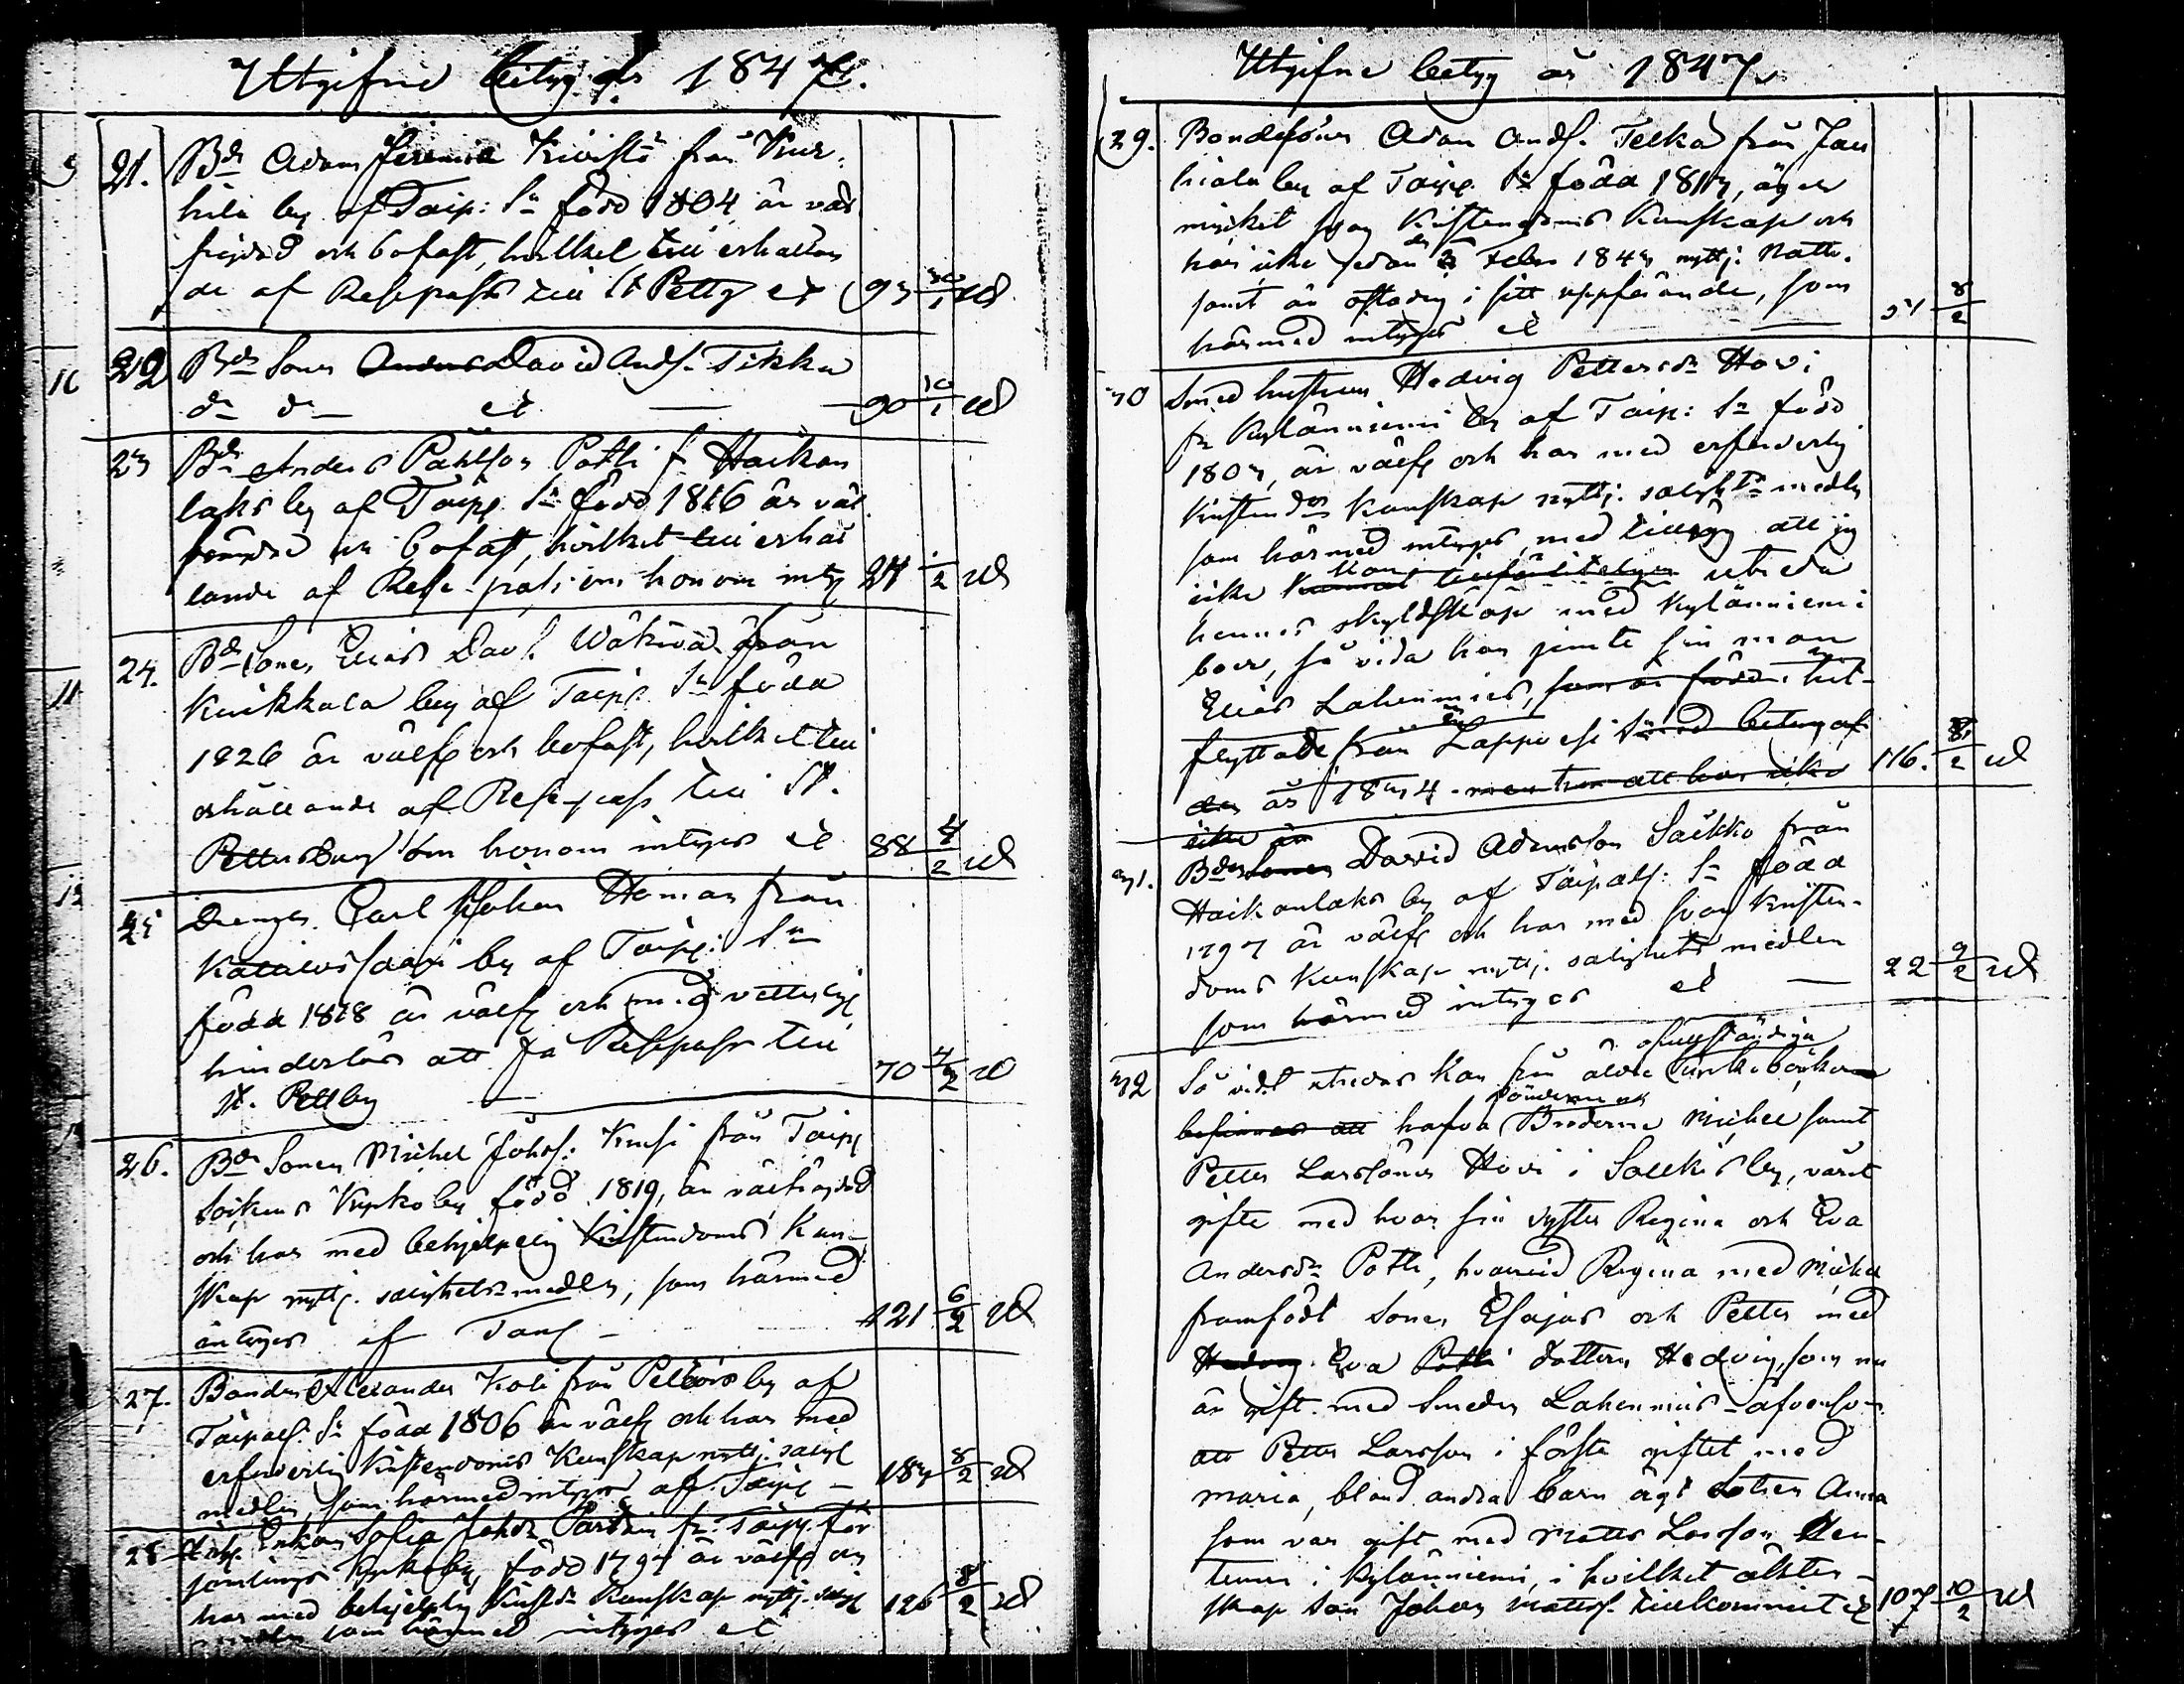 Utgifne betyg år 1847.
21. Bd Adam Jeremia Kivistö från Kur-
hila by af Taip: Sn född 1804 är väl
frejdad och bofast, hvilket till erhållan
de af Resepass till St Pettg et 93 30/1 ud
22 Bd Sonen David Andrs. Tikka
do do et 90 30/1 ud
23 Bd Anders Påhlson Potti f Haikan
laks by af Taip. Sn född 1816 är väl
frejdad och bofast, hvilket till erhål
lande af Rese-pass om honom intyg 24 1/2 ud
24. Bd Sonen Elias Davs. Wäkevä från
Kuikkala by af Taip. Sn född
1826 är välfr och bofast, hvilket till
erhållande af Rese-pass till St.
Pettersburg om honom intygas et 88 4/2 ud
25 Drengen Carl Johan Homan från
by af Taip: Sn
född 1828 är välfr och med vetterligt
hinderlös att få Resepass till
St. Pettbg 70 4/2 ud
26. Bd Sonen Michel Johs: Kursi från Taip
Sockens Kyrkoby född 1819, är välfrejdad
och har med behjelpelig Kristendoms kun-
skap nyttj. salighetsmedlen, som härmed
intygas af Taip 121 6/2 ud
27. Bonden Alexander Koli från by af
Taipals. Sn född 1806 är välfr och har med
erforderlig Kristendoms Kunskap nyttj. salig
medlen, som härmed intygas af Taip 183 8/2 ud
28 Enkan Sofia Johsdr fr: Taip. för
samlings Kyrkoby, född 1797 är välfr och
har med behjelplig Kristds Kunskap nyttj. salig
medlen som härmed intygas et 126 8/2 ud
Utgifne betyg år 1847.
29. Bondesonen Adam Andrs. Telka från Jan
hiala by af Taip. Sn född 1813, äger
mycket svag Kristendoms Kunskap och
har icke sedan den Febr 1843 nyttj. Nattv.
samt är ostadig i sitt uppförande, som
härmed intygas et 51 8/2
30 Smed hustrun Hedvig Pettersdr Hovi
fr Kylänniemi by af Taip: Sn född
1803, är välfr och har med erforderlig
Kristendoms Kunskap nyttj. saligts medlen
som härmed intygas, med tillägg att jag
icke kan utreda
hennes skyldskap med Kylänniemi
boer, så vida hon jemte sin man
Elias Lahenmies, som är född hit-
flyttade från Lappvesi Sn med betyg af
den år 1834 men hon att hon icke 116. 8/2 ud
icke är
31. Bd Sonen David Adamsson Saikko från
Haikanlaks by af Taipals: Sn född
1797 är välfr och har med svag Kristen-
doms Kunskap nyttj. salighets medlen
som härmed intygas et 22 9/2 ud
32 Så vidt utredas kan från äldre ofullständiga Kyrkoböcker
befinnes att hafva Bröderne Michel samt
Petter Larssöner Hovi i Solkis by, varit
gifte med hvar sin syster Regina och Eva
Andersdr Potti, hvarvid Regina med Michel
framfödt Sonen Esajas och Petter med
Hedvig Eva Potti dottern Hedvig, som nu
är gift med Smeden Lahenmies - äfvensom
att Petter Larsson i förste giftet med
Maria, bland andra barn ägt dottren Anna
som var gift med Matts Larsson Hen-
tunen i Kylänniemi, i hvilket äkten-
skap son Johan Mattss. tillkommit et 107 10/2 ud